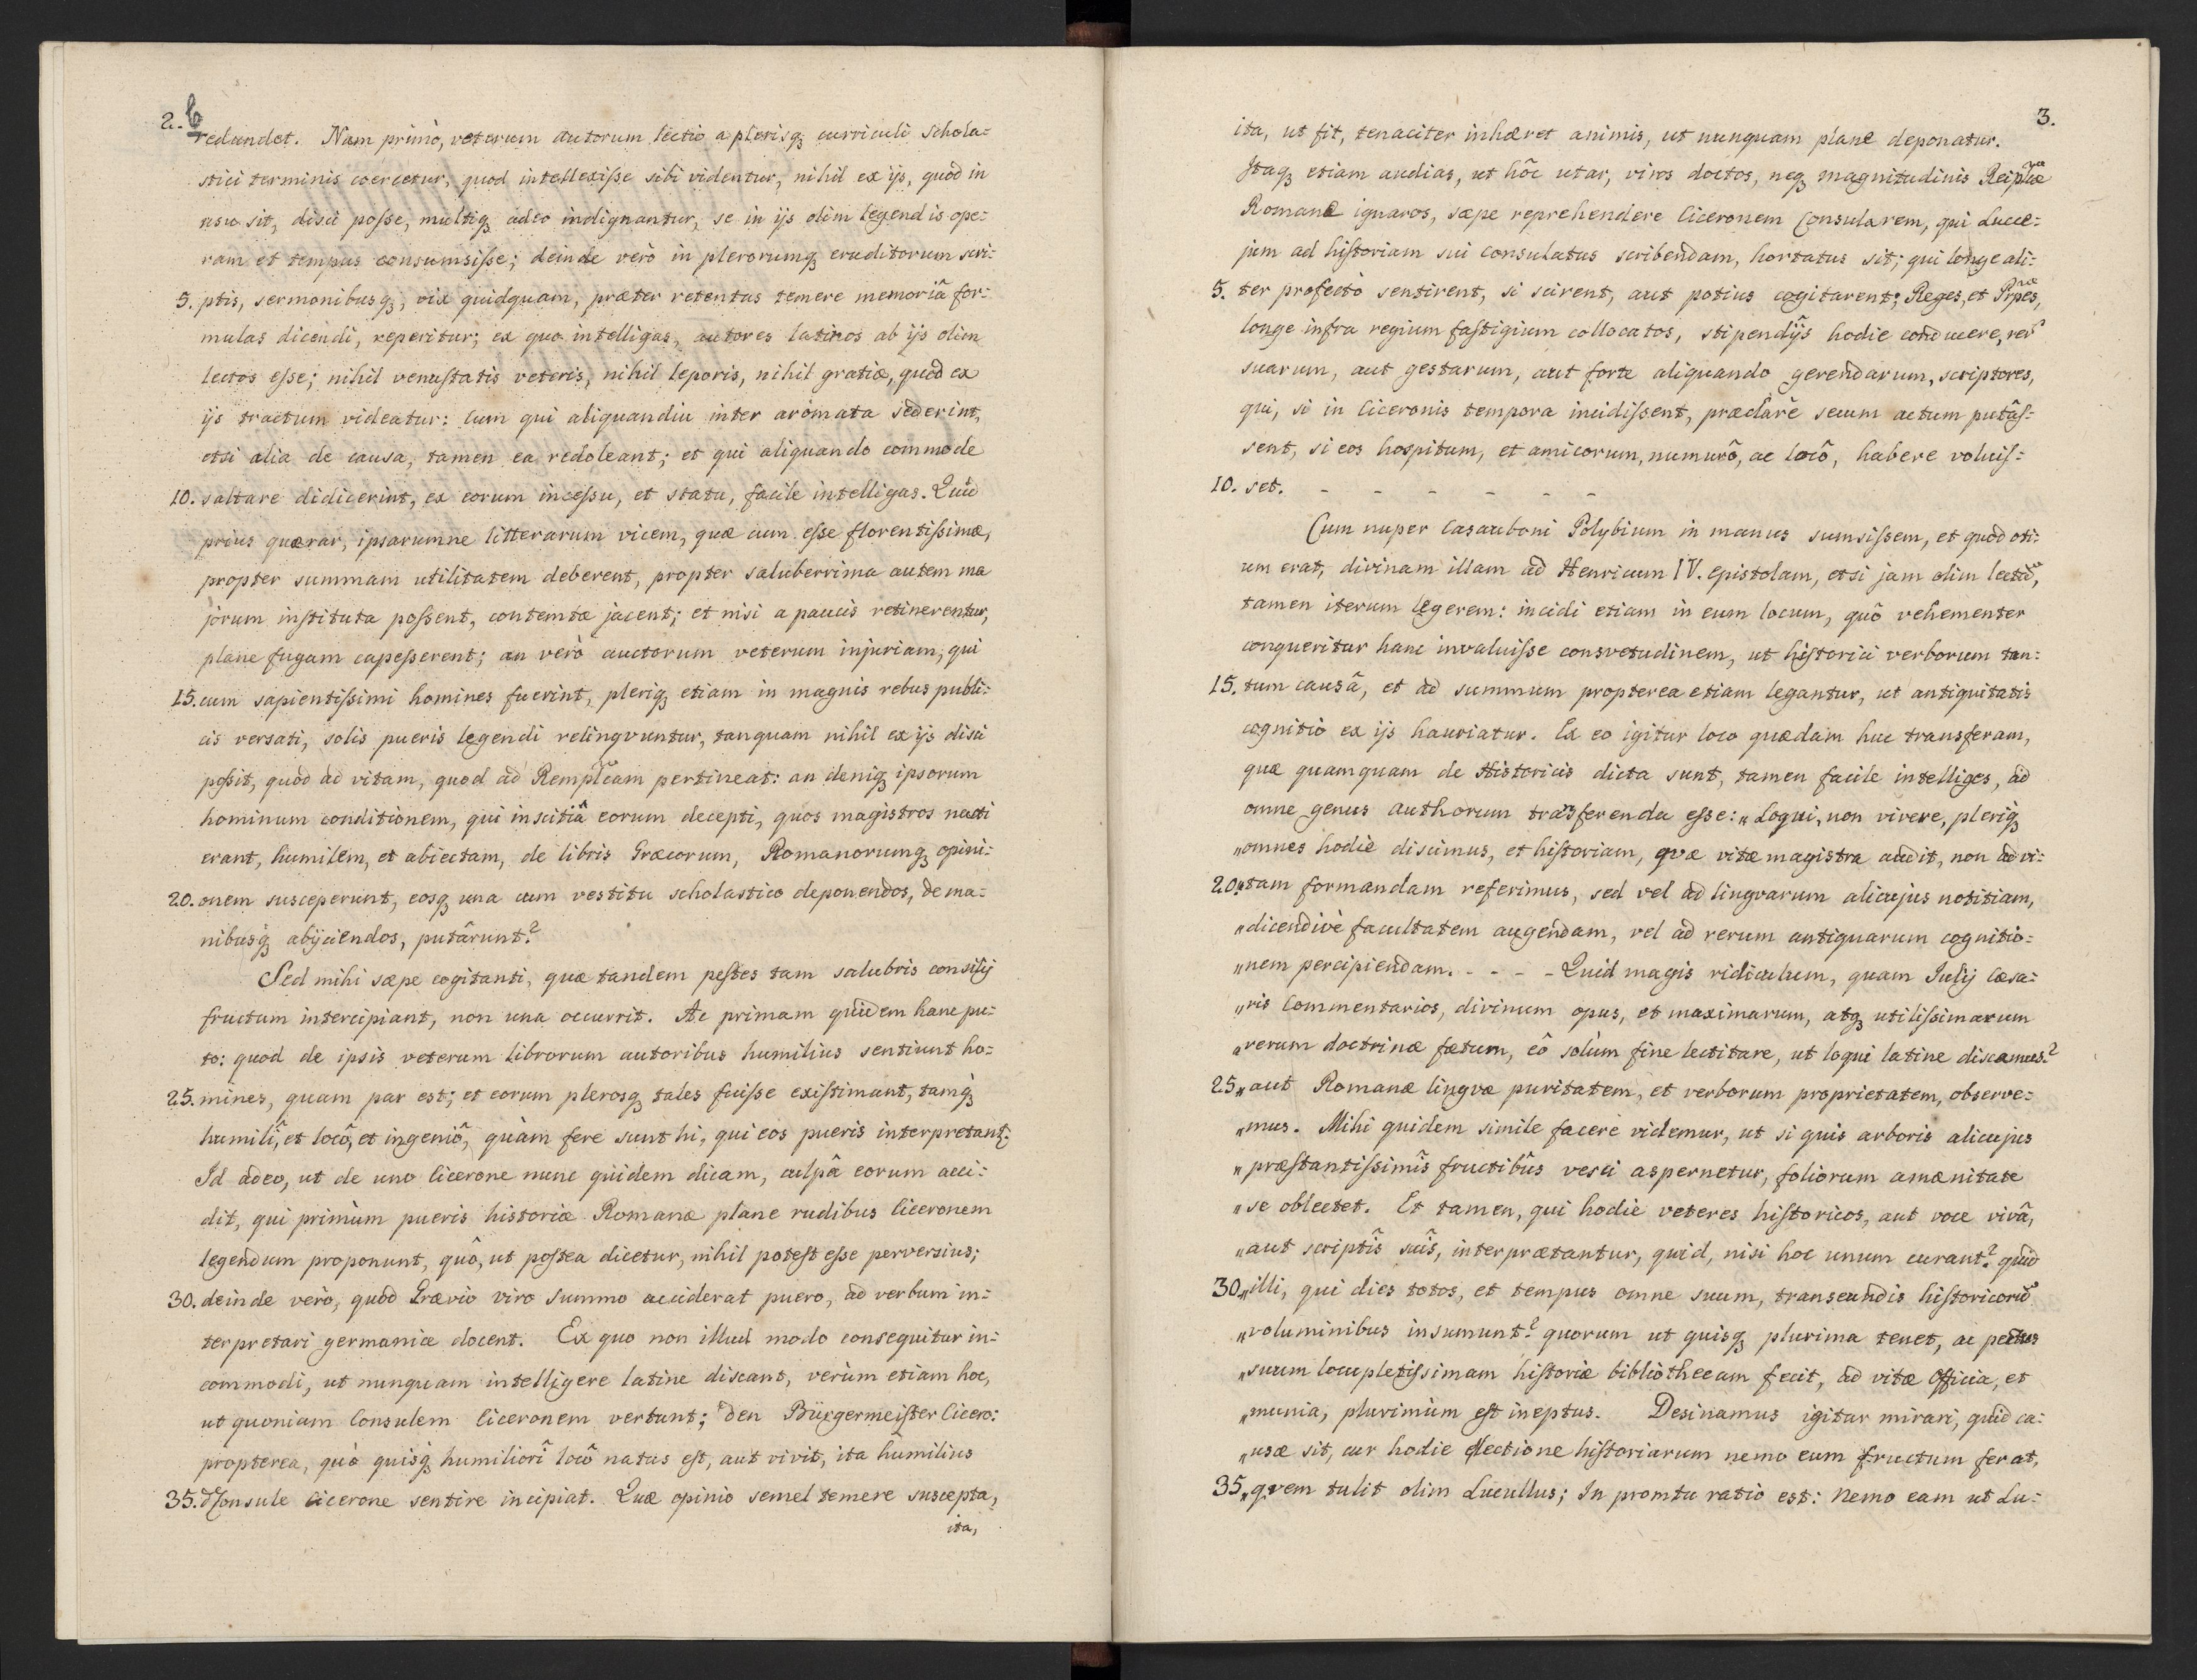 2. b
redundet. Nam primò, veterum autorum lectio a plerisq; curriculi schola=
stici terminis coercetur, quod intellexisse sibi videntur, nihil ex ijs, quod in
usu sit, disci posse, multiq; adeo indignantur, se in ijs olim legendis ope=
ram et tempus consumsisse; deinde verò in plerorumq; eruditorum scri=
5. ptis, sermonibusq;, vix quidquam, præter retentas temere memoriâ for=
mulas dicendi, reperitur; ex quo intelligas, autores latinos ab ijs olim
lectos esse; nihil venustatis veteris, nihil leporis, nihil gratiæ, quod ex
ijs tractum videatur: cum qui aliquandiu inter aromata sederint,
etsi alia de causa, tamen ea redoleant; et qui aliquando commode
10. saltare didicerint, ex eorum incessu, et statu, facile intelligas. Quid
prius quærar, ipsarumne litterarum vicem, quæ cum esse florentissimæ,
propter summam utilitatem deberent, propter saluberrima autem ma
jorum instituta possent, contemtæ jacent; et nisi a paucis retinerentur,
plane fugam capesserent; an verò auctorum veterum injuriam, qui
15. cum sapientissimi homines fuerint, pleriq; etiam in magnis rebus publi=
cis versati, solis pueris legendi relinqvuntur, tanquam nihil ex ijs disci
possit, quod ad vitam, quod ad Remplcam pertineat: an deniq; ipsorum
hominum conditionem, qui inscitiâ eorum decepti, quos magistros nacti
erant, humilem, et abiectam, de libris Græcorum, Romanorumq; opini=
20. onem susceperunt, eosq; una cum vestitu scholastico deponendos, de ma=
nibusq; abijciendos, putârunt?
Sed mihi sæpe cogitanti, quæ tandem pestes tam salubris consilij
fructum intercipiant, non una occurrit. Ac primam quidem hanc pu=
to: quod de ipsis veterum librorum autoribus humilius sentiunt ho=
25. mines, quam par est; et eorum plerosq; tales fuisse existimant, tamq;
humili, et locô, et ingeniô, quàm fere sunt hi, qui eos pueris interpretant:
Id adeo, ut de uno Cicerone nunc quidem dicam, culpâ eorum acci=
dit, qui primùm pueris historiæ Romanæ plane rudibus Ciceronem
legendum proponunt, quô, ut postea dicetur, nihil potest esse perversius;
30. deinde verò, quod Grævio viro summo acciderat puero, ad verbum in=
terpretari germanice docent. Ex quo non illud modo consequitur in=
commodi, ut nunquam intelligere latine discant, verùm etiam hoc,
ut quoniam Consulem Ciceronem vertunt; den Bürgermeister Cicero:
propterea, quò quisq; humiliori locô natus est, aut vivit, ita humilius
35. d Consule Cicerone sentire incipiat. Quæ opinio semel temere suscepta,
ita,
3.
ita, ut fit, tenaciter inhæret animis, ut nunquam plane deponatur.
Itaq; etiam audias, ut hôc utar, viros doctos, neq; magnitudinis Reiplcæ
Romanæ ignaros, sæpe reprehendere Ciceronem Consularem, qui Lucce=
jum ad historiam sui Consulatus scribendam, hortatus sit; qui longe ali=
5. ter profectò sentirent, si scirent, aut potius cogitarent; Reges, et Prpes,
longe infra regium fastigium collocatos, stipendijs hodie conducere, rerũ
suarum, aut gestarum, aut forte aliquando gerendarum, scriptores,
qui, si in Ciceronis tempora incidissent, præclarè secum actum putâs=
sent, si eos hospitum, et amicorum, numerô, ac locô, habere voluis=
10. set. - - - - - -
Cum nuper Casauboni Polybium in manus sumsissem, et quod oti=
um erat, divinam illam ad Henricum IV. epistolam, etsi jam olim lectã,
tamen iterum legerem: incidi etiam in eum locum, quô vehementer
conqueritur hanc invaluisse consvetudinem, ut historici verborum tan=
15. tum causâ, et ad summum propterea etiam legantur, ut antiquitatis
cognitio ex ijs hauriatur. Ex eo igitur loco quædam huc transferam,
quæ quamquam de Historicis dicta sunt, tamen facile intelliges, ad
omne genus authorum transferenda esse: „Loqui, non vivere, pleriq;
„omnes hodie discimus, et historiam, qvæ vitæ magistra audit, non ad vi=
20. „tam formandam referimus, sed vel ad lingvarum alicujus notitiam,
„dicendivè facultatem augendam, vel ad rerum antiquarum cognitio=
„nem percipiendam. - - - - Quid magis ridiculum, quam Julij Cæsa=
„ris Commentarios, divinum opus, et maximarum, atq; utilissimarum
„rerum doctrinæ fætum, eô solùm fine lectitare, ut loqui latine discamus?
25. „aut Romanæ lingvæ puritatem, et verborum proprietatem, observe=
„mus. Mihi quidem simile facere videmur, ut si quis arboris alicujus
„præstantissimis fructibus vesci aspernetur, foliorum amænitate
„se oblectet. Et tamen, qui hodie veteres historicos, aut voce vivâ,
„aut scriptis suis, interprætantur, quid, nisi hoc unum curant? quid
30. „illi, qui dies totos, et tempus omne suum, transeundis historicorũ
„voluminibus insumunt? quorum ut quisq; plurima tenet, ac pectus
„suum locupletissimam historiæ bibliothecam fecit, ad vitæ officia, et
„munia, plurimùm est ineptus. Desinamus igitur mirari, quid ca=
„usæ sit, cur hodie e lectione historiarum nemo eum fructum ferat,
35. „qvem tulit olim Lucullus; In promtu ratio est: Nemo eam ut Lu=